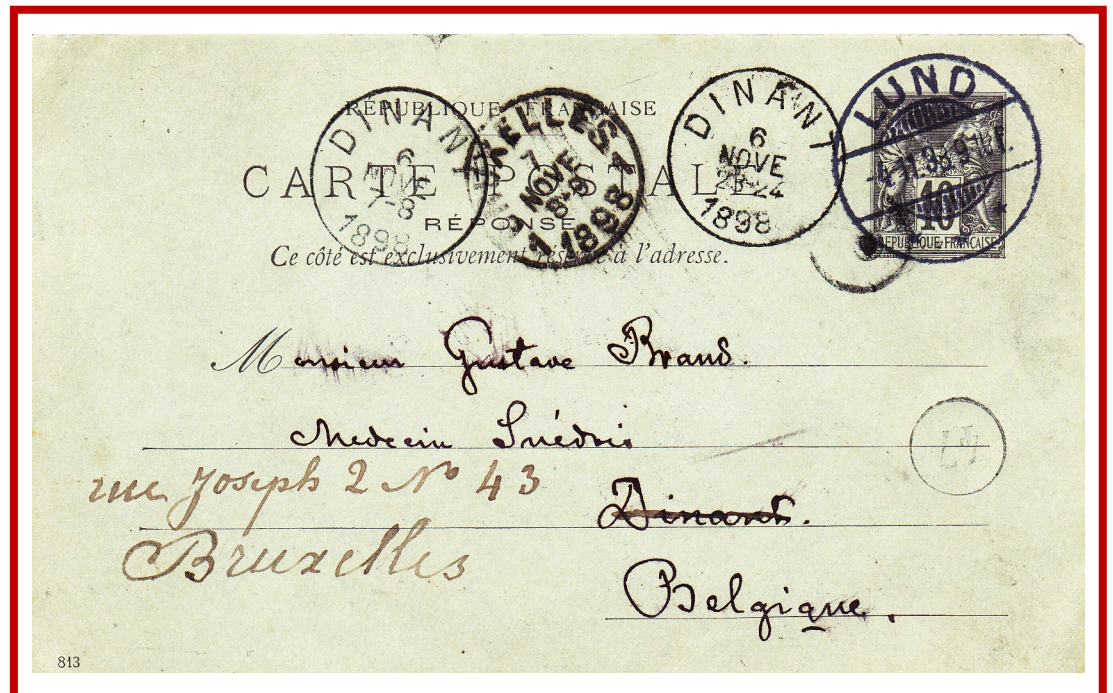 RÉPUBLIQUE FRANÇAISE
CARTE POSTALE
RÉPONSE
Ce côté est exclusivement réservé à l'adresse.
DINANT
6
7-8
1898
BRUXELLES 1
7
NOVE
8-9
1898
1
DINANT
6
NOVE
23-24
1898
LUND
4.11.98
10
REPUBLIQUE FRANÇAISE
Monsieur Gustave Brand.
Medecin Suédois
rue Joseph 2 No 43
Dinant.
Bruxelles
Belgique.
813